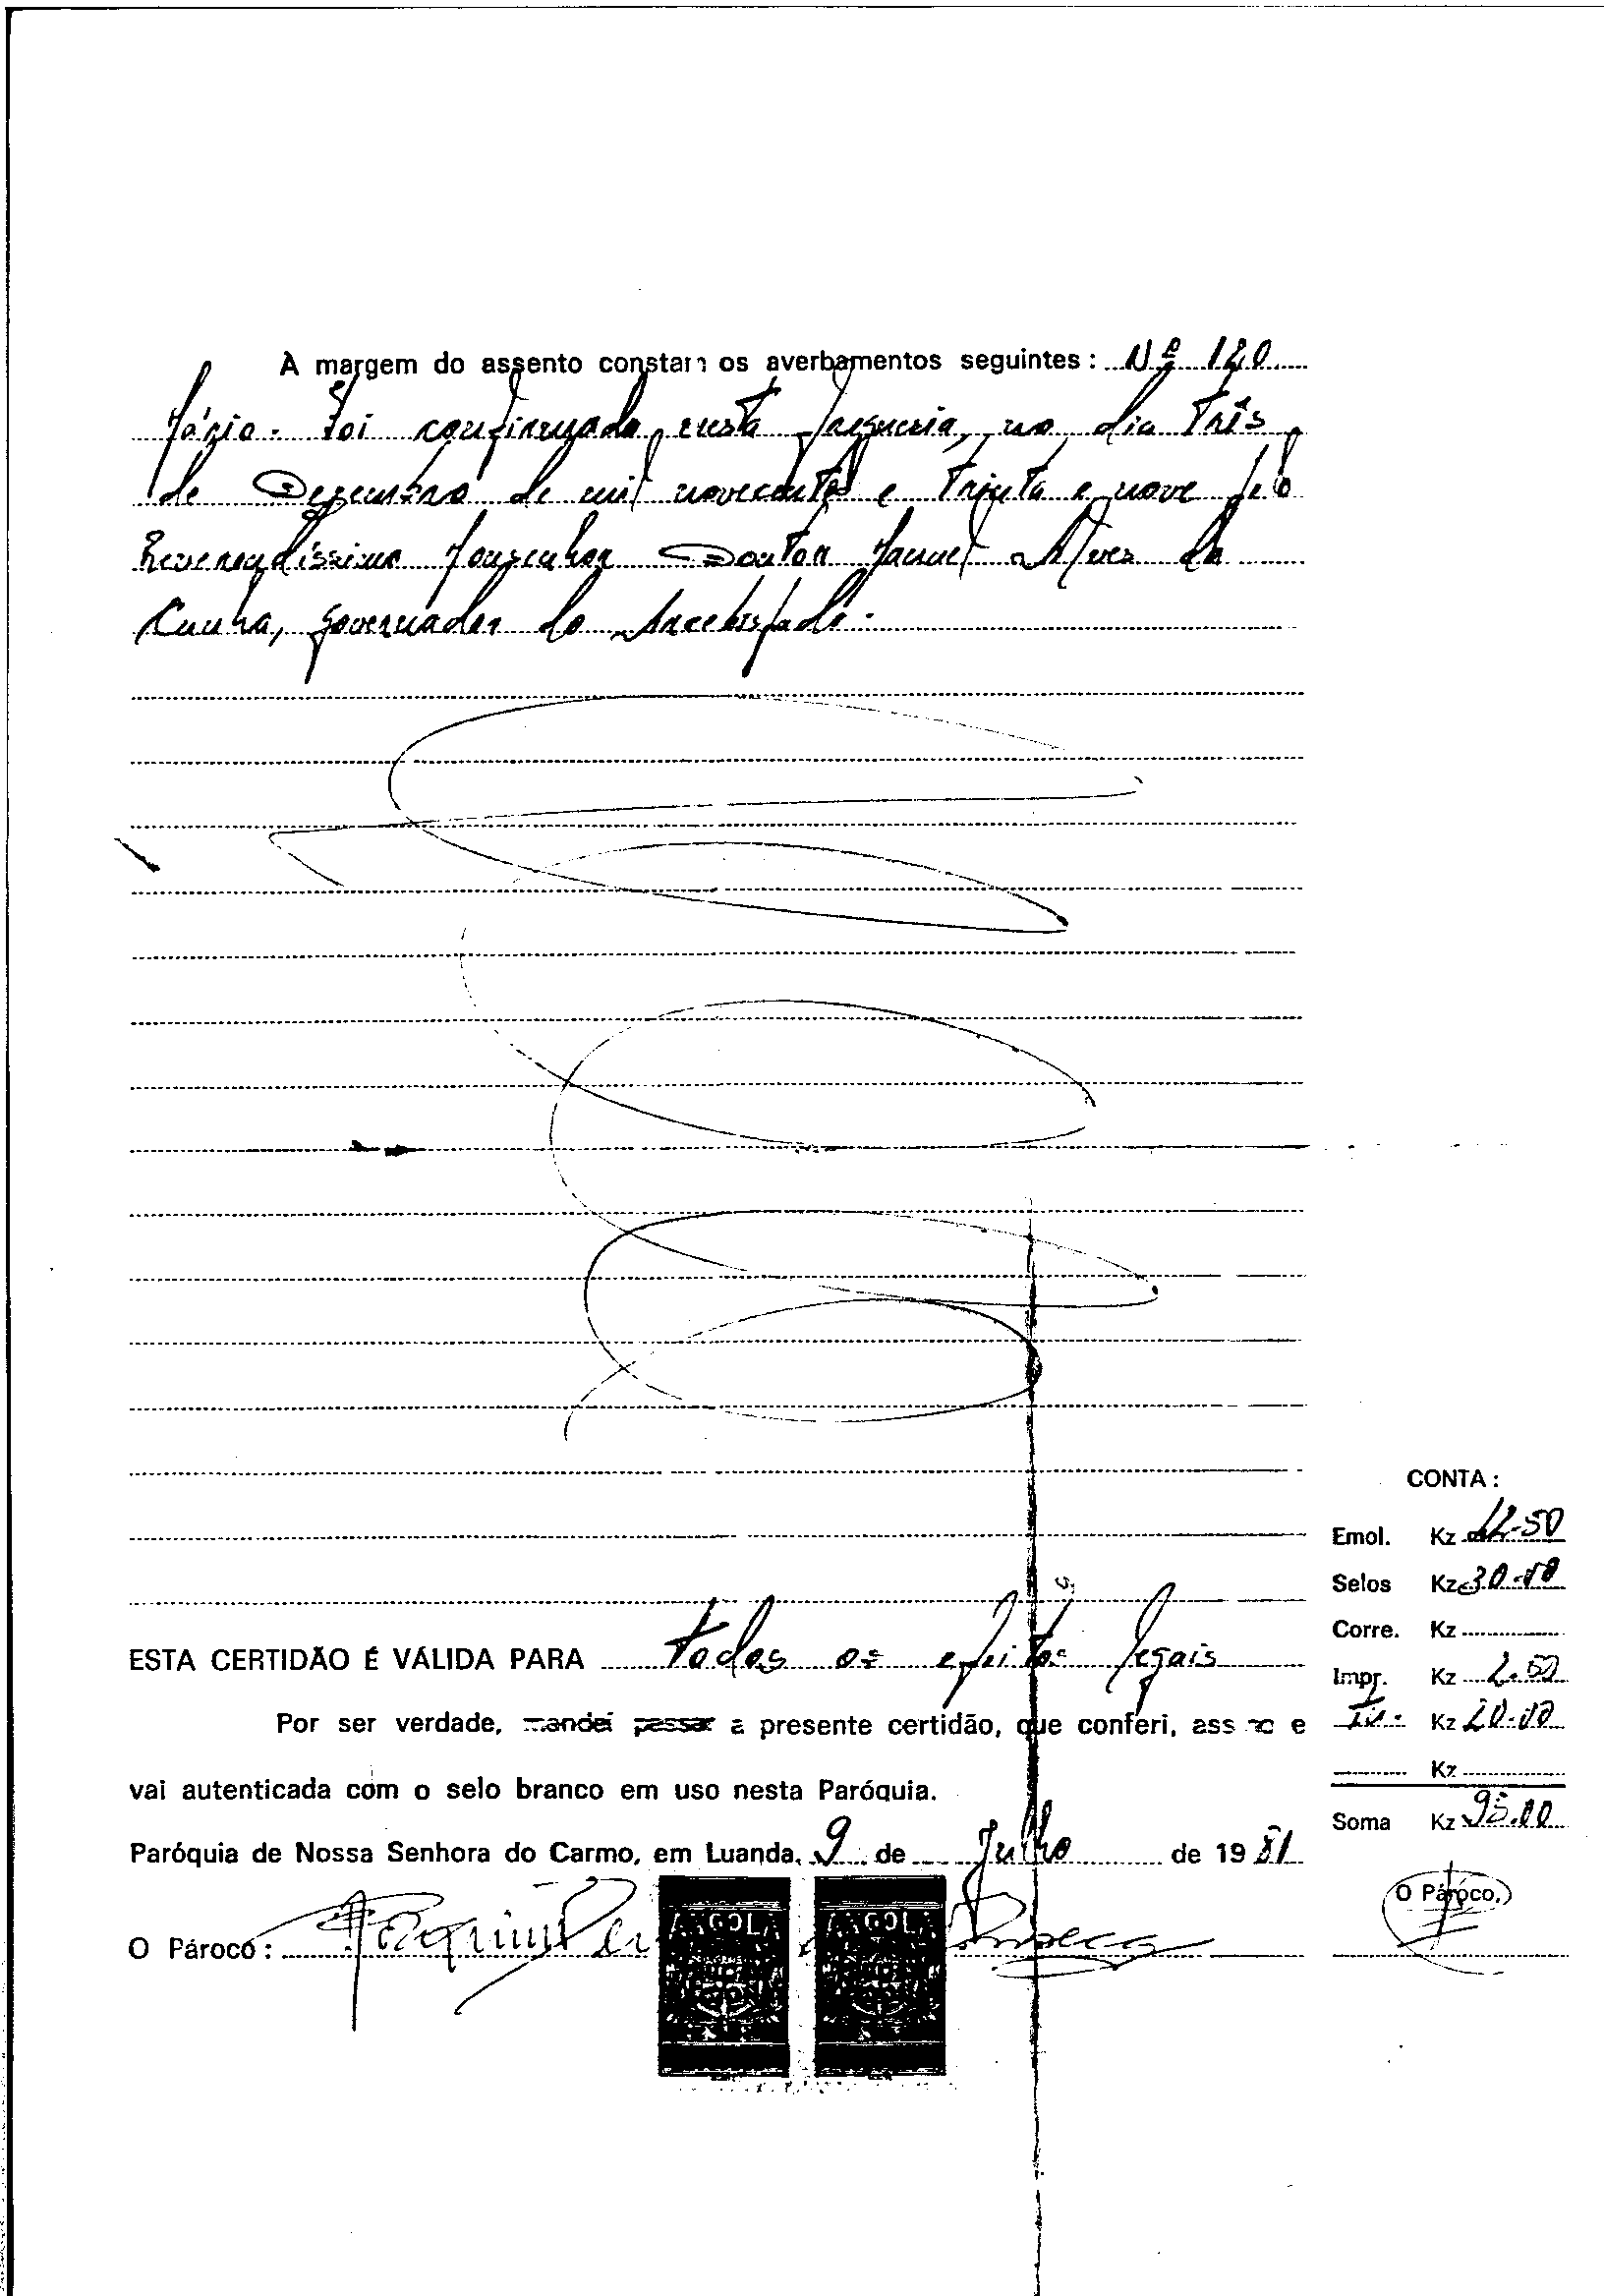 À margem do assento constam os averbamentos seguintes: Nº 120
Mário. Foi confirmado nesta freguesia, no dia três
de Dezembro de mil novecentos e trinta e nove pelo
Reverendíssimo Monsenhor Doutor Manuel Alves da
Cunha, governador do Arcebispado.
CONTA:
Emol. Kz 42.50
Selos Kz 30.00
Corre. Kz
ESTA CERTIDÃO É VÁLIDA PARA todos os efeitos legais
Impr. Kz 2.50
Por ser verdade, mandei passar a presente certidão, que conferi, assino e
Kz 20.00
Kz
vai autenticada com o selo branco em uso nesta Paróquia.
Soma Kz 95.00
Paróquia de Nossa Senhora do Carmo, em Luanda, 9 de Julho de 1981
O Pároco,
O Pároco: Joaquim Fonseca
ANGOLA ANGOLA